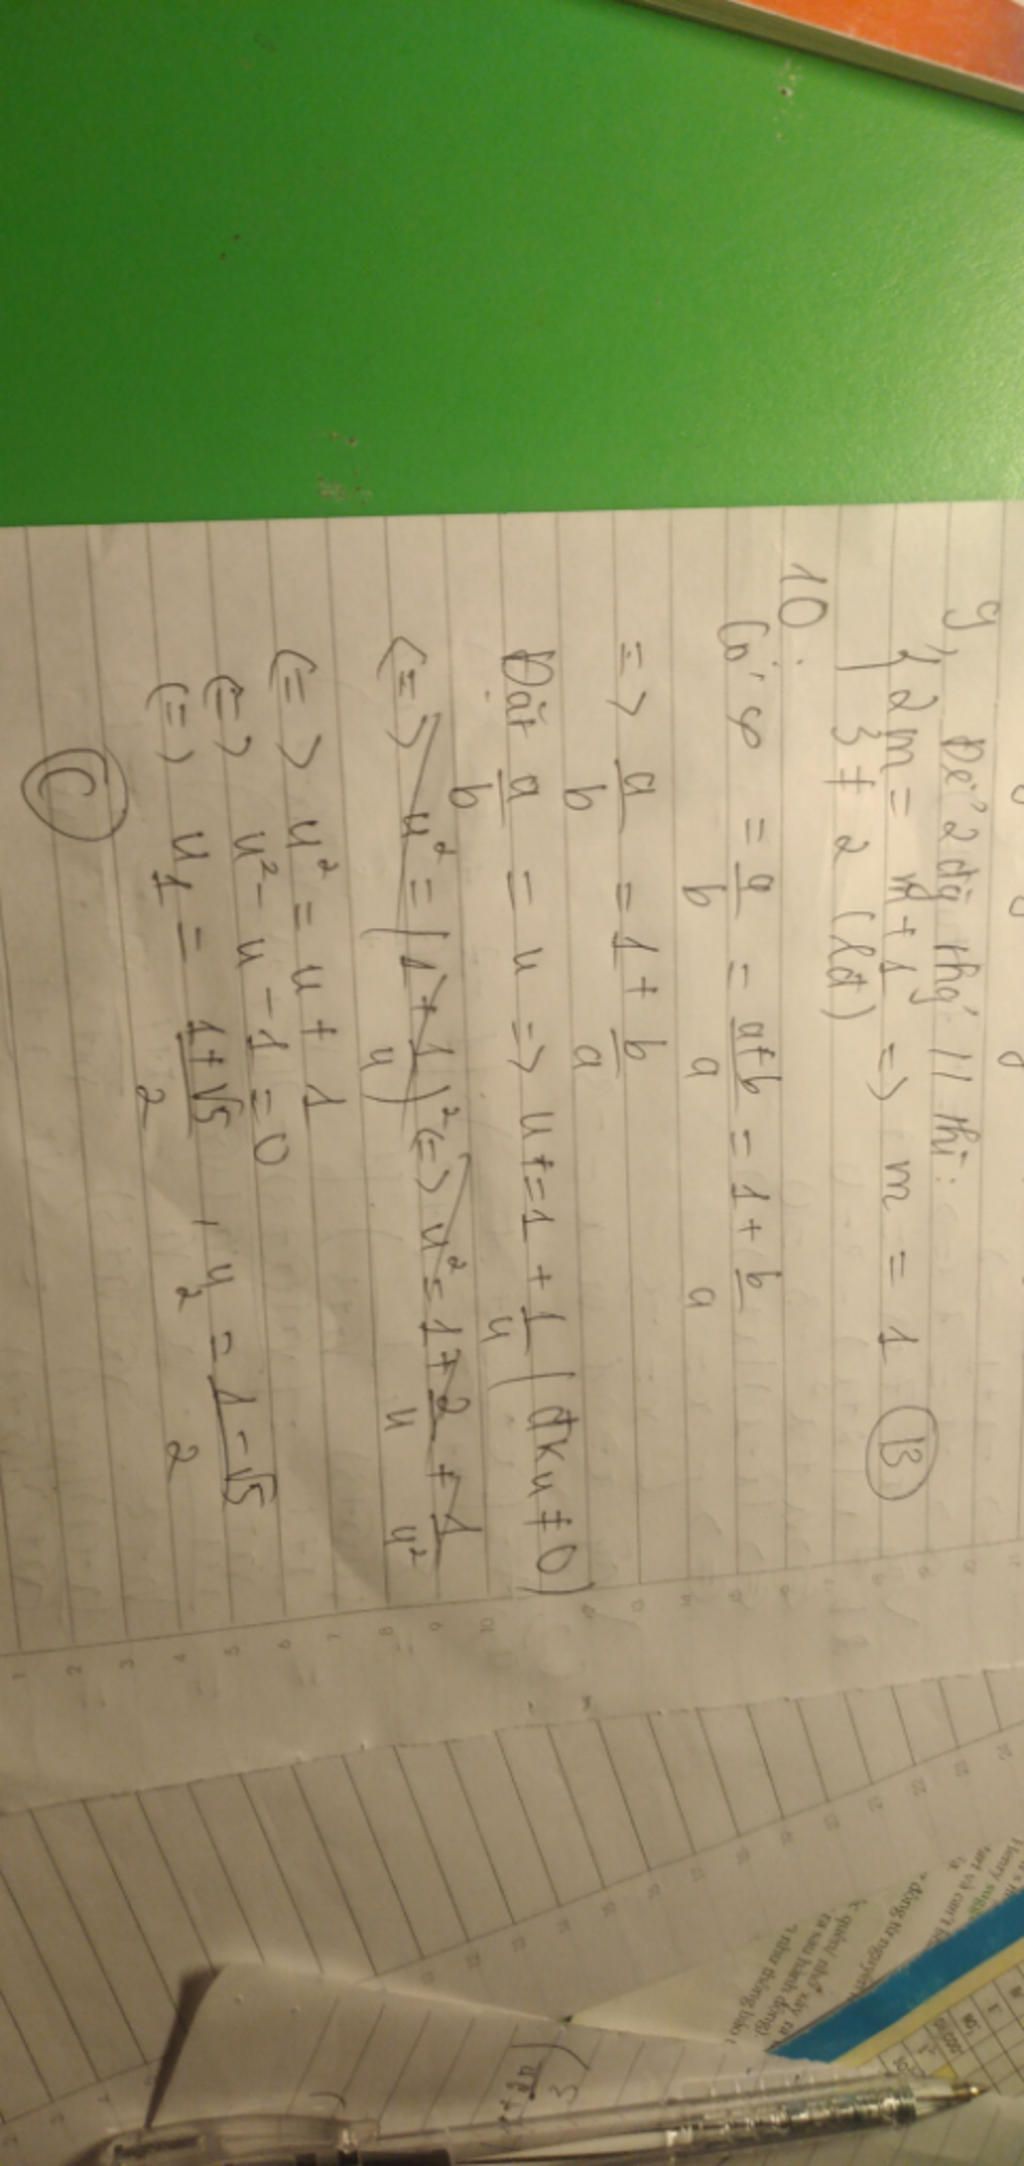 9, Để 2 đg thg' // thì:
{ 2m = m + 1 => m = 1 (B)
3 ≠ 2 (lđ)
10.
Có φ = a/b = a+b/a = 1 + b/a
=> a/b = 1 + b/a
Đặt a/b = u => u = 1 + 1/u (đk u ≠ 0)
<=> u² = (1 + 1/u)² <=> u² = 1 + 2/u + 1/u²
<=> u² = u + 1
<=> u² - u - 1 = 0
<=> u1 = 1+√5/2 , u2 = 1-√5/2
(C)